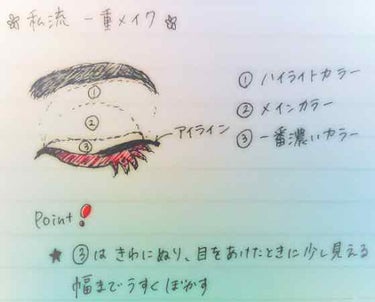 ❀私流 一重メイク❀
① ハイライトカラー
② メインカラー
③ 一番濃いカラー
①
②
③
アイライン
Point!
★ ③は きわにぬり、目をあけたときに少し見える
幅までうすくぼかす